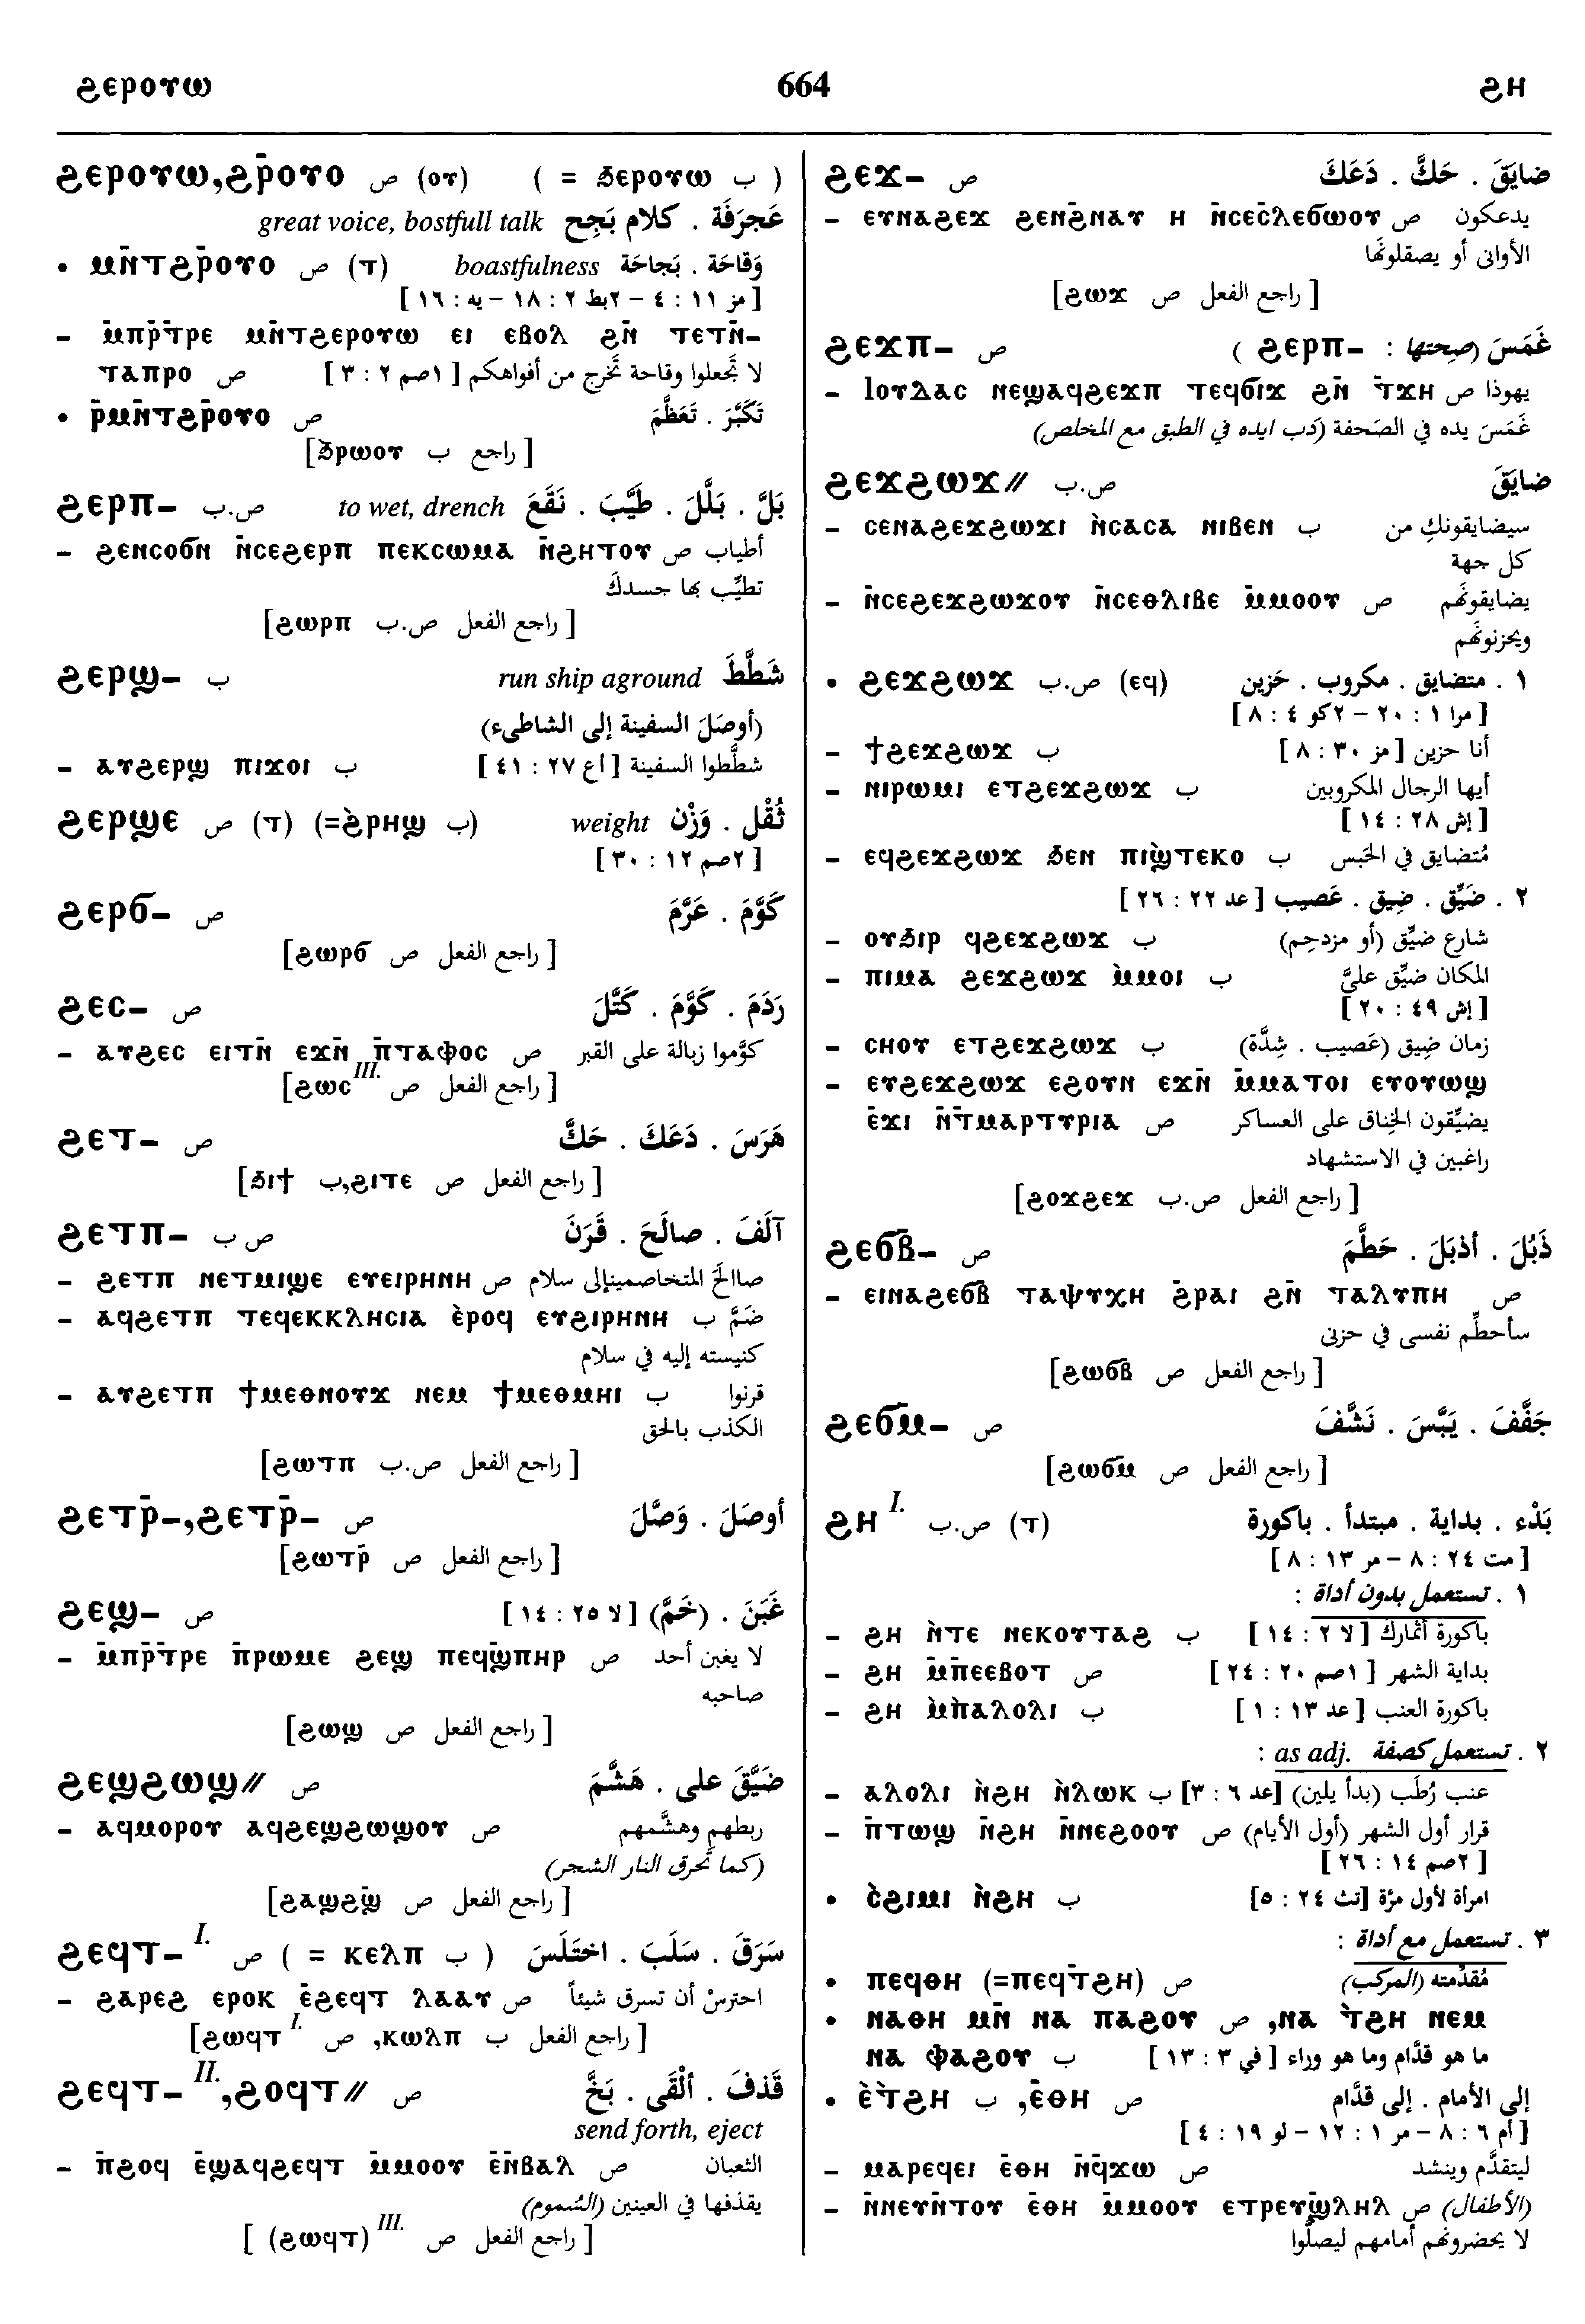 ϩⲉⲣⲟⲩⲱ 664 ϩⲏ
ϩⲉⲣⲟⲩⲱ,ϩⲣ̄ⲟⲩⲟ ص (ⲟⲩ) ( = ϧⲉⲣⲟⲩⲱ ب )
great voice, bostfull talk عَجرَفَة . كلام بَجِح
• ⲙⲛ̄ⲧϩⲣ̄ⲟⲩⲟ ص (ⲧ) boastfulness وَقاحَة . بَجاحَة
[ مز ١١ : ٤ – ٢بط ٢ : ١٨ – يه : ١٦ ]
– ⲙ̄ⲡⲣ̄ⲧⲣⲉ ⲙⲛ̄ⲧϩⲉⲣⲟⲩⲱ ⲉⲓ ⲉⲃⲟⲗ ϩⲛ̄ ⲧⲉⲧⲛ̄-
ⲧⲁⲡⲣⲟ ص لا تَجعلوا وقاحة تَخرج من أفواهكم [ ١صم ٢ : ٣ ]
• ⲣ̄ⲙⲛ̄ⲧϩⲣ̄ⲟⲩⲟ ص تَكَبَّرَ . تَعَظَّمَ
[ راجع ب ϧⲣⲱⲟⲩ]
ϩⲉⲣⲡ– ص.ب to wet, drench بَلَّ . بَلَّلَ . طَيَّبَ . نَقَعَ
– ϩⲉⲛⲥⲟϭⲛ̄ ⲛ̄ⲥⲉϩⲉⲣⲡ ⲡⲉⲕⲥⲱⲙⲁ ⲛ̄ϩⲏⲧⲟⲩ ص أطياب
تطيِّب بها جسدكَ
[ راجع الفعل ص.ب ϩⲱⲣⲡ]
ϩⲉⲣϣ– ب run ship aground شَطَّطَ
(أوصَلَ السفينة إلى الشاطىء)
– ⲁⲩϩⲉⲣϣ ⲡⲓϫⲟⲓ ب شطَّطوا السفينة [ أع ٢٧ : ٤١ ]
ϩⲉⲣϣⲉ ص (ⲧ) (=ϩ̀ⲣⲏϣ ب) weight ثُقْل . وَزْن
[ ٢صم ١٢ : ٣٠ ]
ϩⲉⲣϭ– ص كَوَّمَ . عَرَّمَ
[ راجع الفعل ص ϩⲱⲣϭ]
ϩⲉⲥ– ص رَدَمَ . كَوَّمَ . كَتَّلَ
– ⲁⲩϩⲉⲥ ⲉⲓⲧⲛ̄ ⲉϫⲛ̄ ⲡ̄ⲧⲁⲫⲟⲥ ص كوَّموا زبالة على القبر
[ راجع الفعل ص ϩⲱⲥ III.]
ϩⲉⲧ– ص هَرَسَ . دَعَكَ . حَكَّ
[ راجع الفعل ص ϩⲓⲧⲉ,ب ϧⲓϯ]
ϩⲉⲧⲡ– ص ب آلَفَ . صالَحَ . قَرَنَ
– ϩⲉⲧⲡ ⲛⲉⲧⲙⲓϣⲉ ⲉⲩⲉⲓⲣⲏⲛⲏ ص صاالَح المتخاصمينإلى سلام
– ⲁϥϩⲉⲧⲡ ⲧⲉϥⲉⲕⲕⲗⲏⲥⲓⲁ ⲉ̀ⲣⲟϥ ⲉⲩϩⲓⲣⲏⲛⲏ ب ضَمَّ
كنيسته إليه في سلام
– ⲁⲩϩⲉⲧⲡ ϯⲙⲉⲑⲛⲟⲩϫ ⲛⲉⲙ ϯⲙⲉⲑⲙⲏⲓ ب قرنوا
الكذب بالحق
[ راجع الفعل ص.ب ϩⲱⲧⲡ]
ϩⲉⲧⲣ̄–,ϩⲉⲧⲣ̄– ص أوصَلَ . وَصَّلَ
[ راجع الفعل ص ϩⲱⲧⲣ̄]
ϩⲉϣ– ص غَبَنَ . (خَمَّ) [ لا ٢٥ : ١٤ ]
– ⲙ̄ⲡⲣ̄ⲧⲣⲉ ⲡ̄ⲣⲱⲙⲉ ϩⲉϣ ⲡⲉϥϣ̄ⲡⲏⲣ ص لا يغبن أحد
صاحبه
[ راجع الفعل ص ϩⲱϣ]
ϩⲉϣϩⲱϣ// ص ضَيَّقَ على . هَشَّمَ
– ⲁϥⲙⲟⲣⲟⲩ ⲁϥϩⲉϣϩⲱϣⲟⲩ ص ربطهم وهشَّمهم
(كما تَحرق النار الشجر)
[ راجع الفعل ص ϩⲁϣϩϣ̄]
ϩⲉϥⲧ– I. ص ( = ⲕⲉⲗⲡ ب ) سَرَقَ . سَلَبَ . اختَلَسَ
– ϩⲁⲣⲉϩ ⲉⲣⲟⲕ ⲉ̄ϩⲉϥⲧ ⲗⲁⲁⲩ ص احترسْ أن تسرق شيئاً
[ راجع الفعل ب ⲕⲱⲗⲡ, ص ϩⲱϥⲧ I.]
ϩⲉϥⲧ– II.,ϩⲟϥⲧ// ص قَذفَ . ألْقَى . بَخَّ
send forth, eject
– ⲡ̄ϩⲟϥ ⲉ̄ϣⲁϥϩⲉϥⲧ ⲙ̄ⲙⲟⲟⲩ ⲉ̄ⲛ̄ⲃⲁⲗ ص الثعبان
يقذفها في العينين (السُموم)
[ راجع الفعل ص (ϩⲱϥⲧ) III. ]
ϩⲉϫ– ص ضايَقَ . حَكَّ . دَعَكَ
– ⲉⲩⲛⲁϩⲉϫ ϩⲉⲛϩ̄ⲛⲁⲩ ⲏ ⲛ̄ⲥⲉⲥ̄ⲗⲉϭⲗⲱⲟⲩ ص يدعكون
الأوانى أو يصقلونَها
[ راجع الفعل ص ϩⲱϫ]
ϩⲉϫⲡ– ص غَمَسَ (صِحتها : ϩⲉⲣⲡ– )
– Ⲓⲟⲩⲇⲁⲥ ⲛⲉϣⲁϥϩⲉϫⲡ ⲧⲉϥϭⲓϫ ϩⲛ̄ ⲧ̄ϫⲏ ص يهوذا
غَمَسَ يده في الصَحفة (دَب ايده في الطبق مع المخلص)
ϩⲉϫϩⲱϫ// ص.ب ضايَقَ
– ⲥⲉⲛⲁϩⲉϫϩⲱϫⲓ ⲛ̀ⲥⲁⲥⲁ ⲛⲓⲃⲉⲛ ب سيضايقونكِ من
كل جهة
– ⲛ̄ⲥⲉϩⲉϫϩⲱϫⲟⲩ ⲛ̄ⲥⲉⲑⲗⲓⲃⲉ ⲙ̄ⲙⲟⲟⲩ ص يضايقونَهم
ويَحزنونَهم
• ϩⲉϫϩⲱϫ ص.ب (ⲉϥ) ١ . متضايق . مكروب . حَزين
[ مرا ١ : ٢٠ – ٢كو ٤ : ٨ ]
– ϯϩⲉϫϩⲱϫ ب أنا حزين [ مز ٣٠ : ٨ ]
– ⲛⲓⲣⲱⲙⲓ ⲉⲧϩⲉϫϩⲱϫ ب أيها الرجال المكروبين
[ إش ٢٨ : ١٤ ]
– ⲉϥϩⲉϫϩⲱϫ ϧⲉⲛ ⲡⲓϣ̀ⲧⲉⲕⲟ ب مُتضايق في الحَبس
٢ . ضَيِّق . ضِيق . عَصيب [ عد ٢٢ : ٢٦ ]
– ⲟⲩϧⲓⲣ ϥϩⲉϫϩⲱϫ ب شارع ضيِّق (أو مزدحِم)
– ⲡⲓⲙⲁ ϩⲉϫϩⲱϫ ⲙ̀ⲙⲟⲓ ب المكان ضيِّق عليَّ
[ إش ٤٩ : ٢٠ ]
– ⲥⲏⲟⲩ ⲉⲧϩⲉϫϩⲱϫ ب زمان ضِيق (عَصيب . شِدَّة)
– ⲉⲩϩⲉϫϩⲱϫ ⲉϩⲟⲩⲛ ⲉϫⲛ̄ ⲙ̄ⲙⲁⲧⲟⲓ ⲉⲩⲟⲩⲱϣ
ⲉ̄ϫⲓ ⲛ̄ⲧ̄ⲙⲁⲣⲧⲩⲣⲓⲁ ص يضيِّقون الخِناق على العساكر
راغبين في الاستشهاد
[ راجع الفعل ص.ب ϩⲟϫϩⲉϫ]
ϩⲉϭⲃ̄– ص ذَبُلَ . أذبَلَ . حَطَّمَ
– ⲉⲓⲛⲁϩⲉϭⲃ̄ ⲧⲁⲯⲩⲭⲏ ϩ̄ⲣⲁⲓ ϩⲛ̄ ⲧⲁⲗⲩⲡⲏ ص
سأحطِّم نفسى في حزنى
[ راجع الفعل ص ϩⲱϭⲃ̄]
ϩⲉϭⲙ̄– ص جَفَّفَ . يَبَّسَ . نَشَّفَ
[ راجع الفعل ص ϩⲱϭⲙ̄]
ϩⲏ I. ص.ب (ⲧ) بَدْء . بداية . مبتدأ . باكورة
[ مت ٢٤ : ٨ – مر ١٣ : ٨ ]
١ . تستعمل بدون أداة :
– ϩⲏ ⲛ̀ⲧⲉ ⲛⲉⲕⲟⲩⲧⲁϩ ب باكورة أثمارك [ لا ٢ : ١٤ ]
– ϩⲏ ⲙ̄ⲡ̄ⲉⲉⲃⲟⲧ ص بداية الشهر [ ١صم ٢٠ : ٢٤ ]
– ϩⲏ ⲙ̀ⲡ̀ⲁⲗⲟⲗⲓ ب باكورة العنب [ عد ١٣ : ١ ]
٢ . تستعمل كصفة as adj. :
– ⲁⲗⲟⲗⲓ ⲛ̀ϩⲏ ⲛ̀ⲗⲱⲕ ب عنب رُطَب (بدأ يلين) [عد ٦ : ٣]
– ⲡ̄ⲧⲱϣ ⲛ̄ϩⲏ ⲛ̄ⲛⲉϩⲟⲟⲩ ص قرار أول الشهر (أول الأيام)
[ ٢صم ١٤ : ٢٦ ]
• ⲥ̀ϩⲓⲙⲓ ⲛ̀ϩⲏ ب امرأة لأول مرَّة [تث ٢٤ : ٥]
٣ . تستعمل مع أداة :
• ⲡⲉϥⲑⲏ (=ⲡⲉϥⲧ̄ϩⲏ) ص مُقدِّمته (المركب)
• ⲛⲁⲑⲏ ⲙⲛ̄ ⲛⲁ ⲡⲁϩⲟⲩ ص ,ⲛⲁ ⲧ̀ϩⲏ ⲛⲉⲙ
ⲛⲁ ⲫⲁϩⲟⲩ ب ما هو قدَّام وما هو وراء [ في ٣ : ١٣ ]
• ⲉ̀ⲧ̀ϩⲏ ب ,ⲉ̄ⲑⲏ ص إلى الأمام . إلى قدَّام
[ أم ٦ : ٨ – مر ١ : ١٢ – لو ١٩ : ٤ ]
– ⲙⲁⲣⲉϥⲉⲓ ⲉ̄ⲑⲏ ⲛ̄ϥ̄ϫⲱ ص ليتقدَّم وينشد
– ⲛ̄ⲛⲉⲩⲛ̄ⲧⲟⲩ ⲉ̄ⲑⲏ ⲙ̄ⲙⲟⲟⲩ ⲉⲧⲣⲉⲩϣ̄ⲗⲏⲗ ص (الأطفال)
لا يَحضرونَهم أمامهم ليصلُّوا